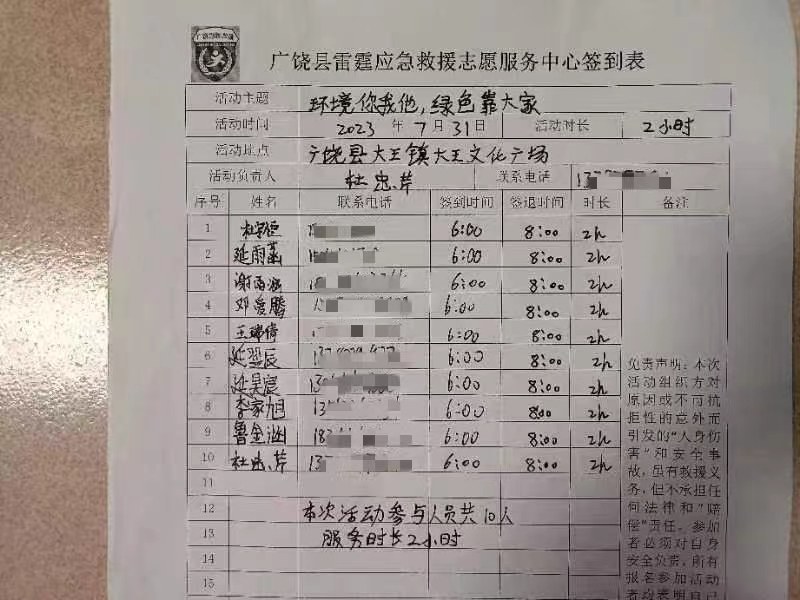 广饶县雷霆应急救援志愿服务中心签到表
活动主题 环境你我他,绿色靠大家
活动时间 2023 年 7 月 31 日 活动时长 2小时
活动地点 广饶县大王镇大王文化广场
活动负责人 杜忠芹 联系电话
序号 姓名 联系电话 签到时间 签退时间 时长 备注
1 6:00 8:00 2h
2 延雨菡 6:00 8:00 2h
3 6:00 8:00 2h
4 邓爱腾 6:00 8:00 2h
5 王瑞倩 6:00 8:00 2h
6 延翌辰 6:00 8:00 2h
7 延昊宸 6:00 8:00 2h
8 李家旭 6:00 8:00 2h
9 鲁金涵 6:00 8:00 2h
10 杜忠芹 6:00 8:00 2h
11
12 本次活动参与人员共10人
13 服务时长2小时
14
15
免责声明:本次
活动组织方对
原因或不可抗
拒性的意外而
引发的“人身伤
害”和安全事
故,虽有救援义
务,但不承担任
何法律和“赔
偿”责任。参加
者必须对自身
安全负责,所有
报名参加活动
者均表明自己